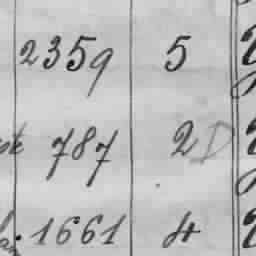 2359 5
787 2 D
1661 4